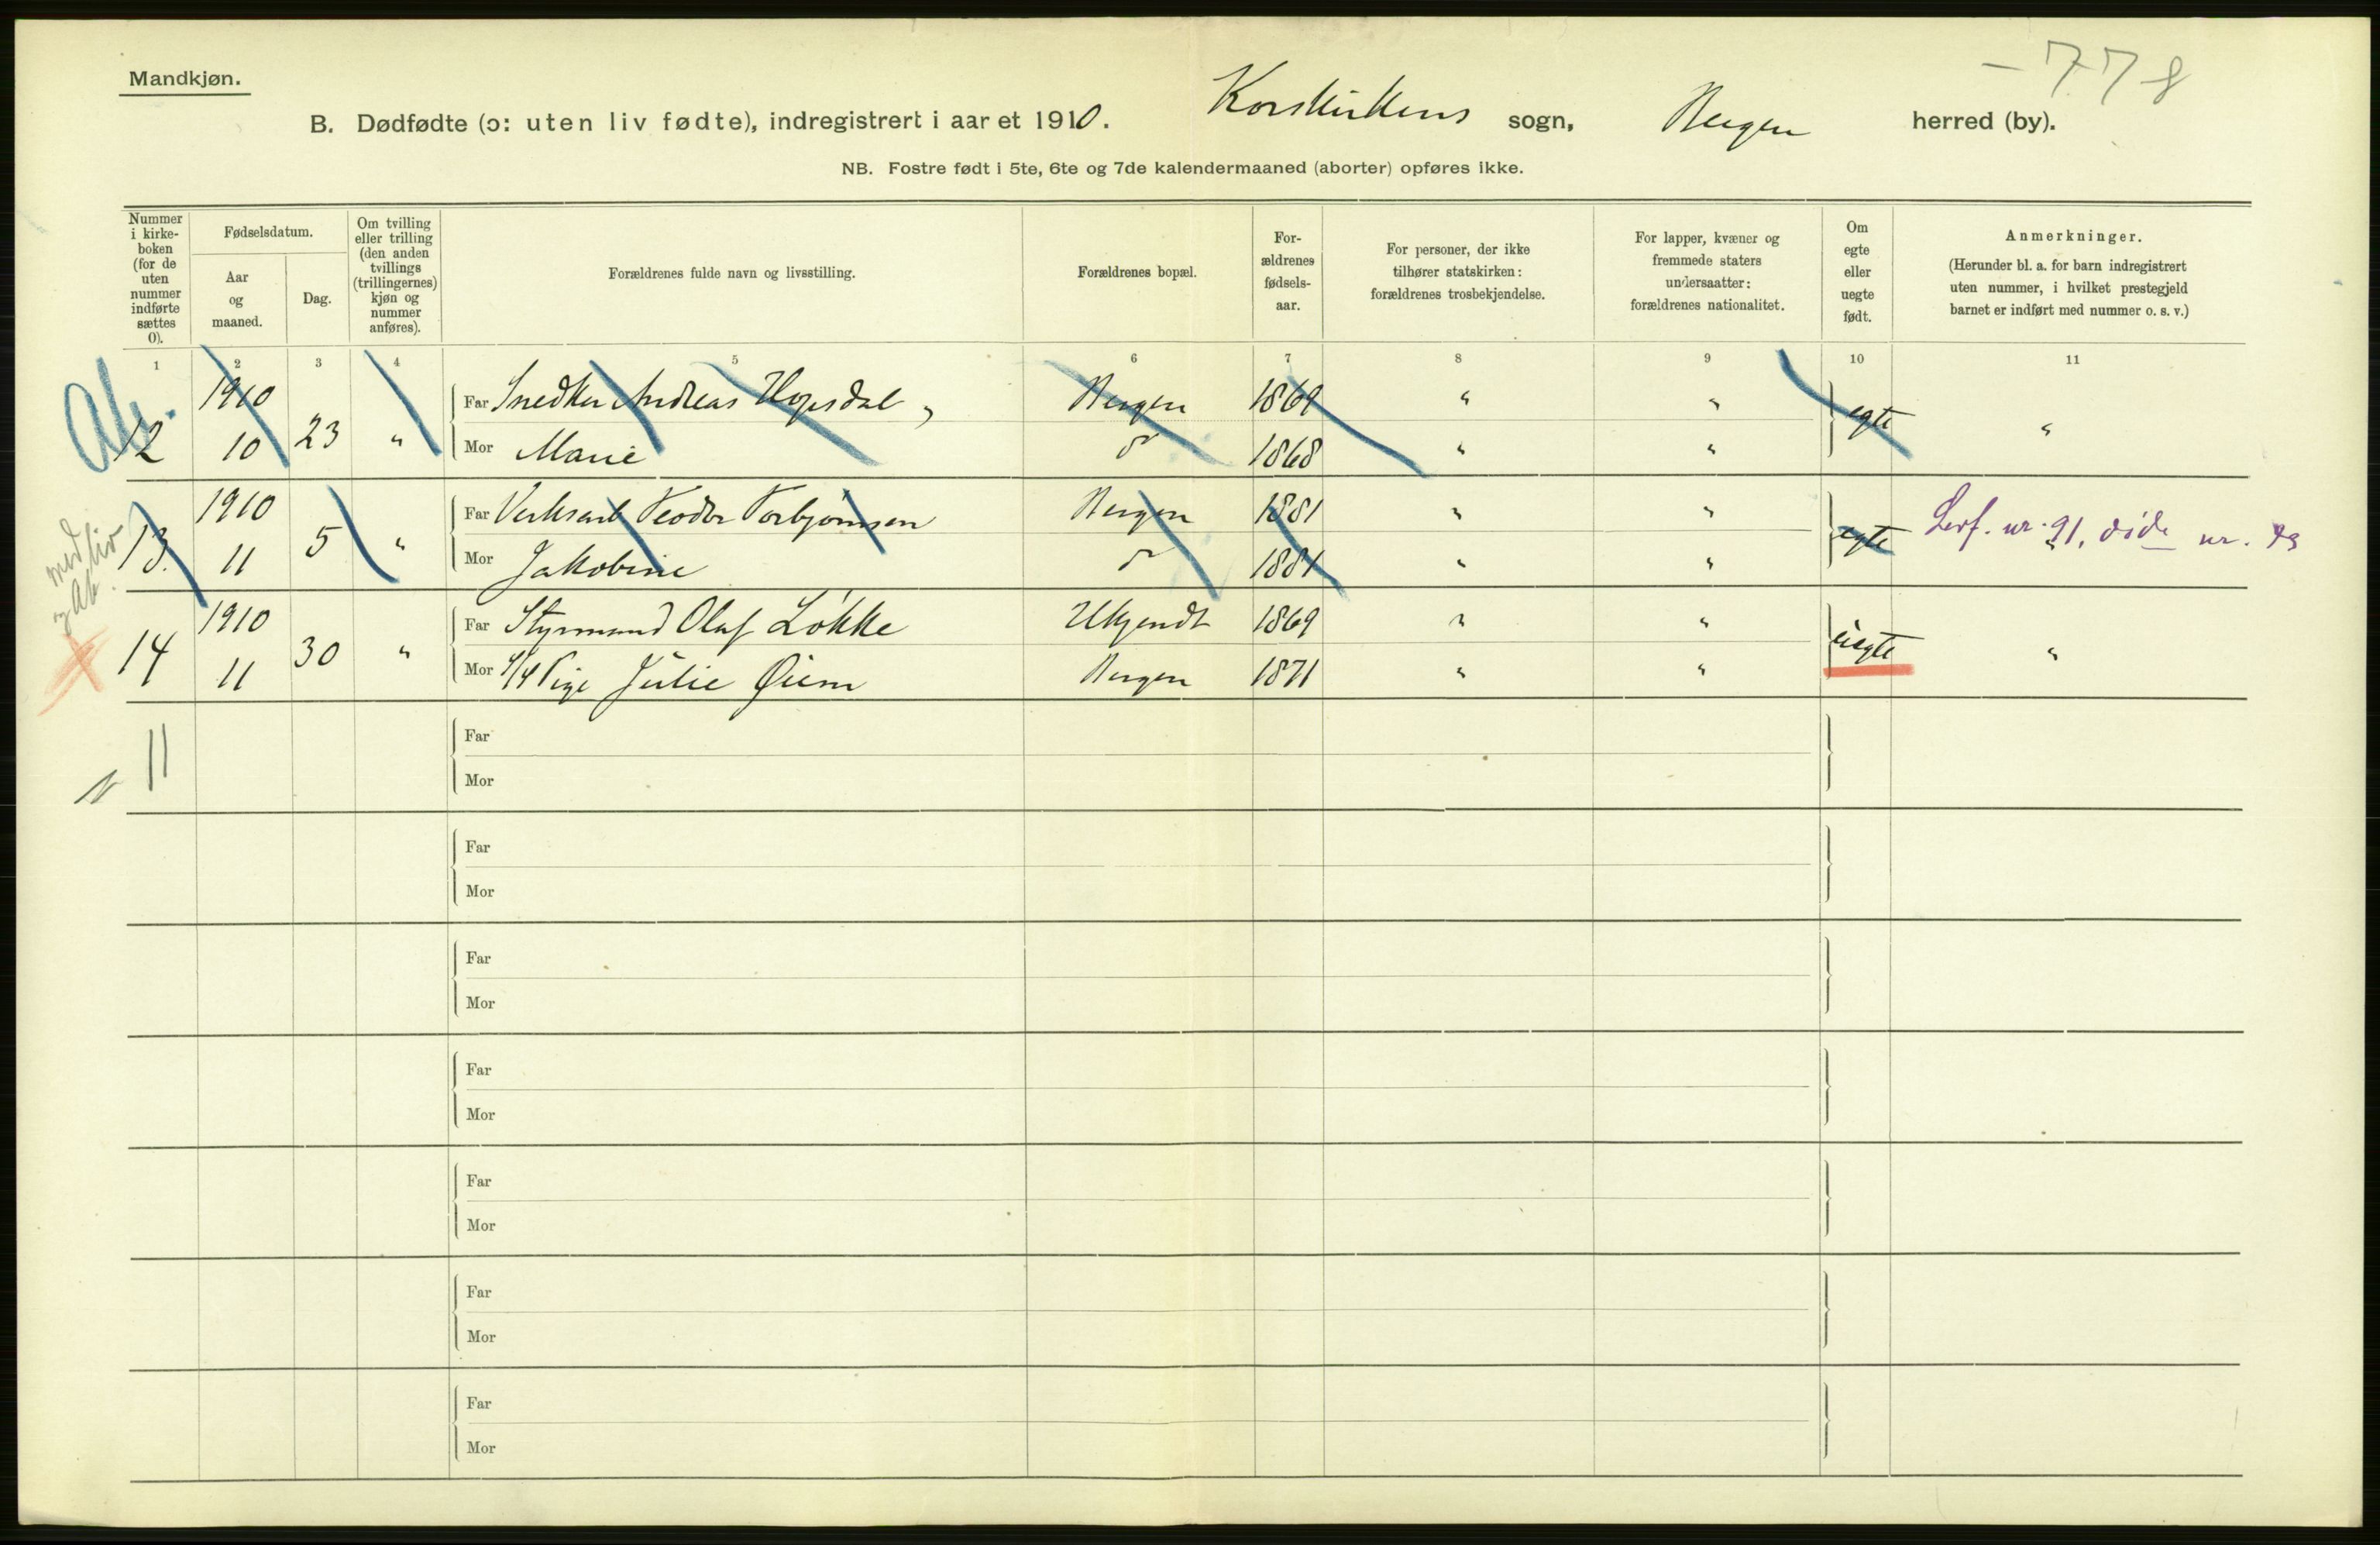 Mandkjøn.
-778
B. Dødfødte (ɔ: uten liv fødte), indregistrert i aaret 1910. Korskirkens sogn, Bergen herred (by).
NB. Fostre født i 5te, 6te og 7de kalendermaaned (aborter) opføres ikke.
Nummer i kirkeboken (for de uten nummer indførte sættes 0).
Fødselsdatum.
Aar og maaned.
Dag.
Om tvilling eller trilling (den anden tvillings (trillingernes) kjøn og nummer anføres).
Forældrenes fulde navn og livsstilling.
Forældrenes bopæl.
For-ældrenes fødsels-aar.
For personer, der ikke tilhører statskirken: forældrenes trosbekjendelse.
For lapper, kvæner og fremmede staters undersaatter: forældrenes nationalitet.
Om egte eller uegte født.
Anmerkninger.
(Herunder bl. a. for barn indregistrert uten nummer, i hvilket prestegjeld barnet er indført med nummer o. s. v.)
1 2 3 4 5 6 7 8 9 10 11
Ab.
12 1910 10 23 " Far Snedker Andreas Hopsdal, Bergen 1869 " " egte "
Mor Marie d° 1868 " "
med liv og Ab.
13. 1910 11 5 " Far Verksarb Teodor Torbjørnsen Bergen 1881 " " egte Levf. nr. 91, døde nr. 73
Mor Jakobine d° 1881 " "
14 1910 11 30 " Far Styrmand Olaf Løkke Ukjendt 1869 " " uegte "
Mor Pige Julie Øien Bergen 1871 " "
11
Far
Mor
Far
Mor
Far
Mor
Far
Mor
Far
Mor
Far
Mor
Far
Mor